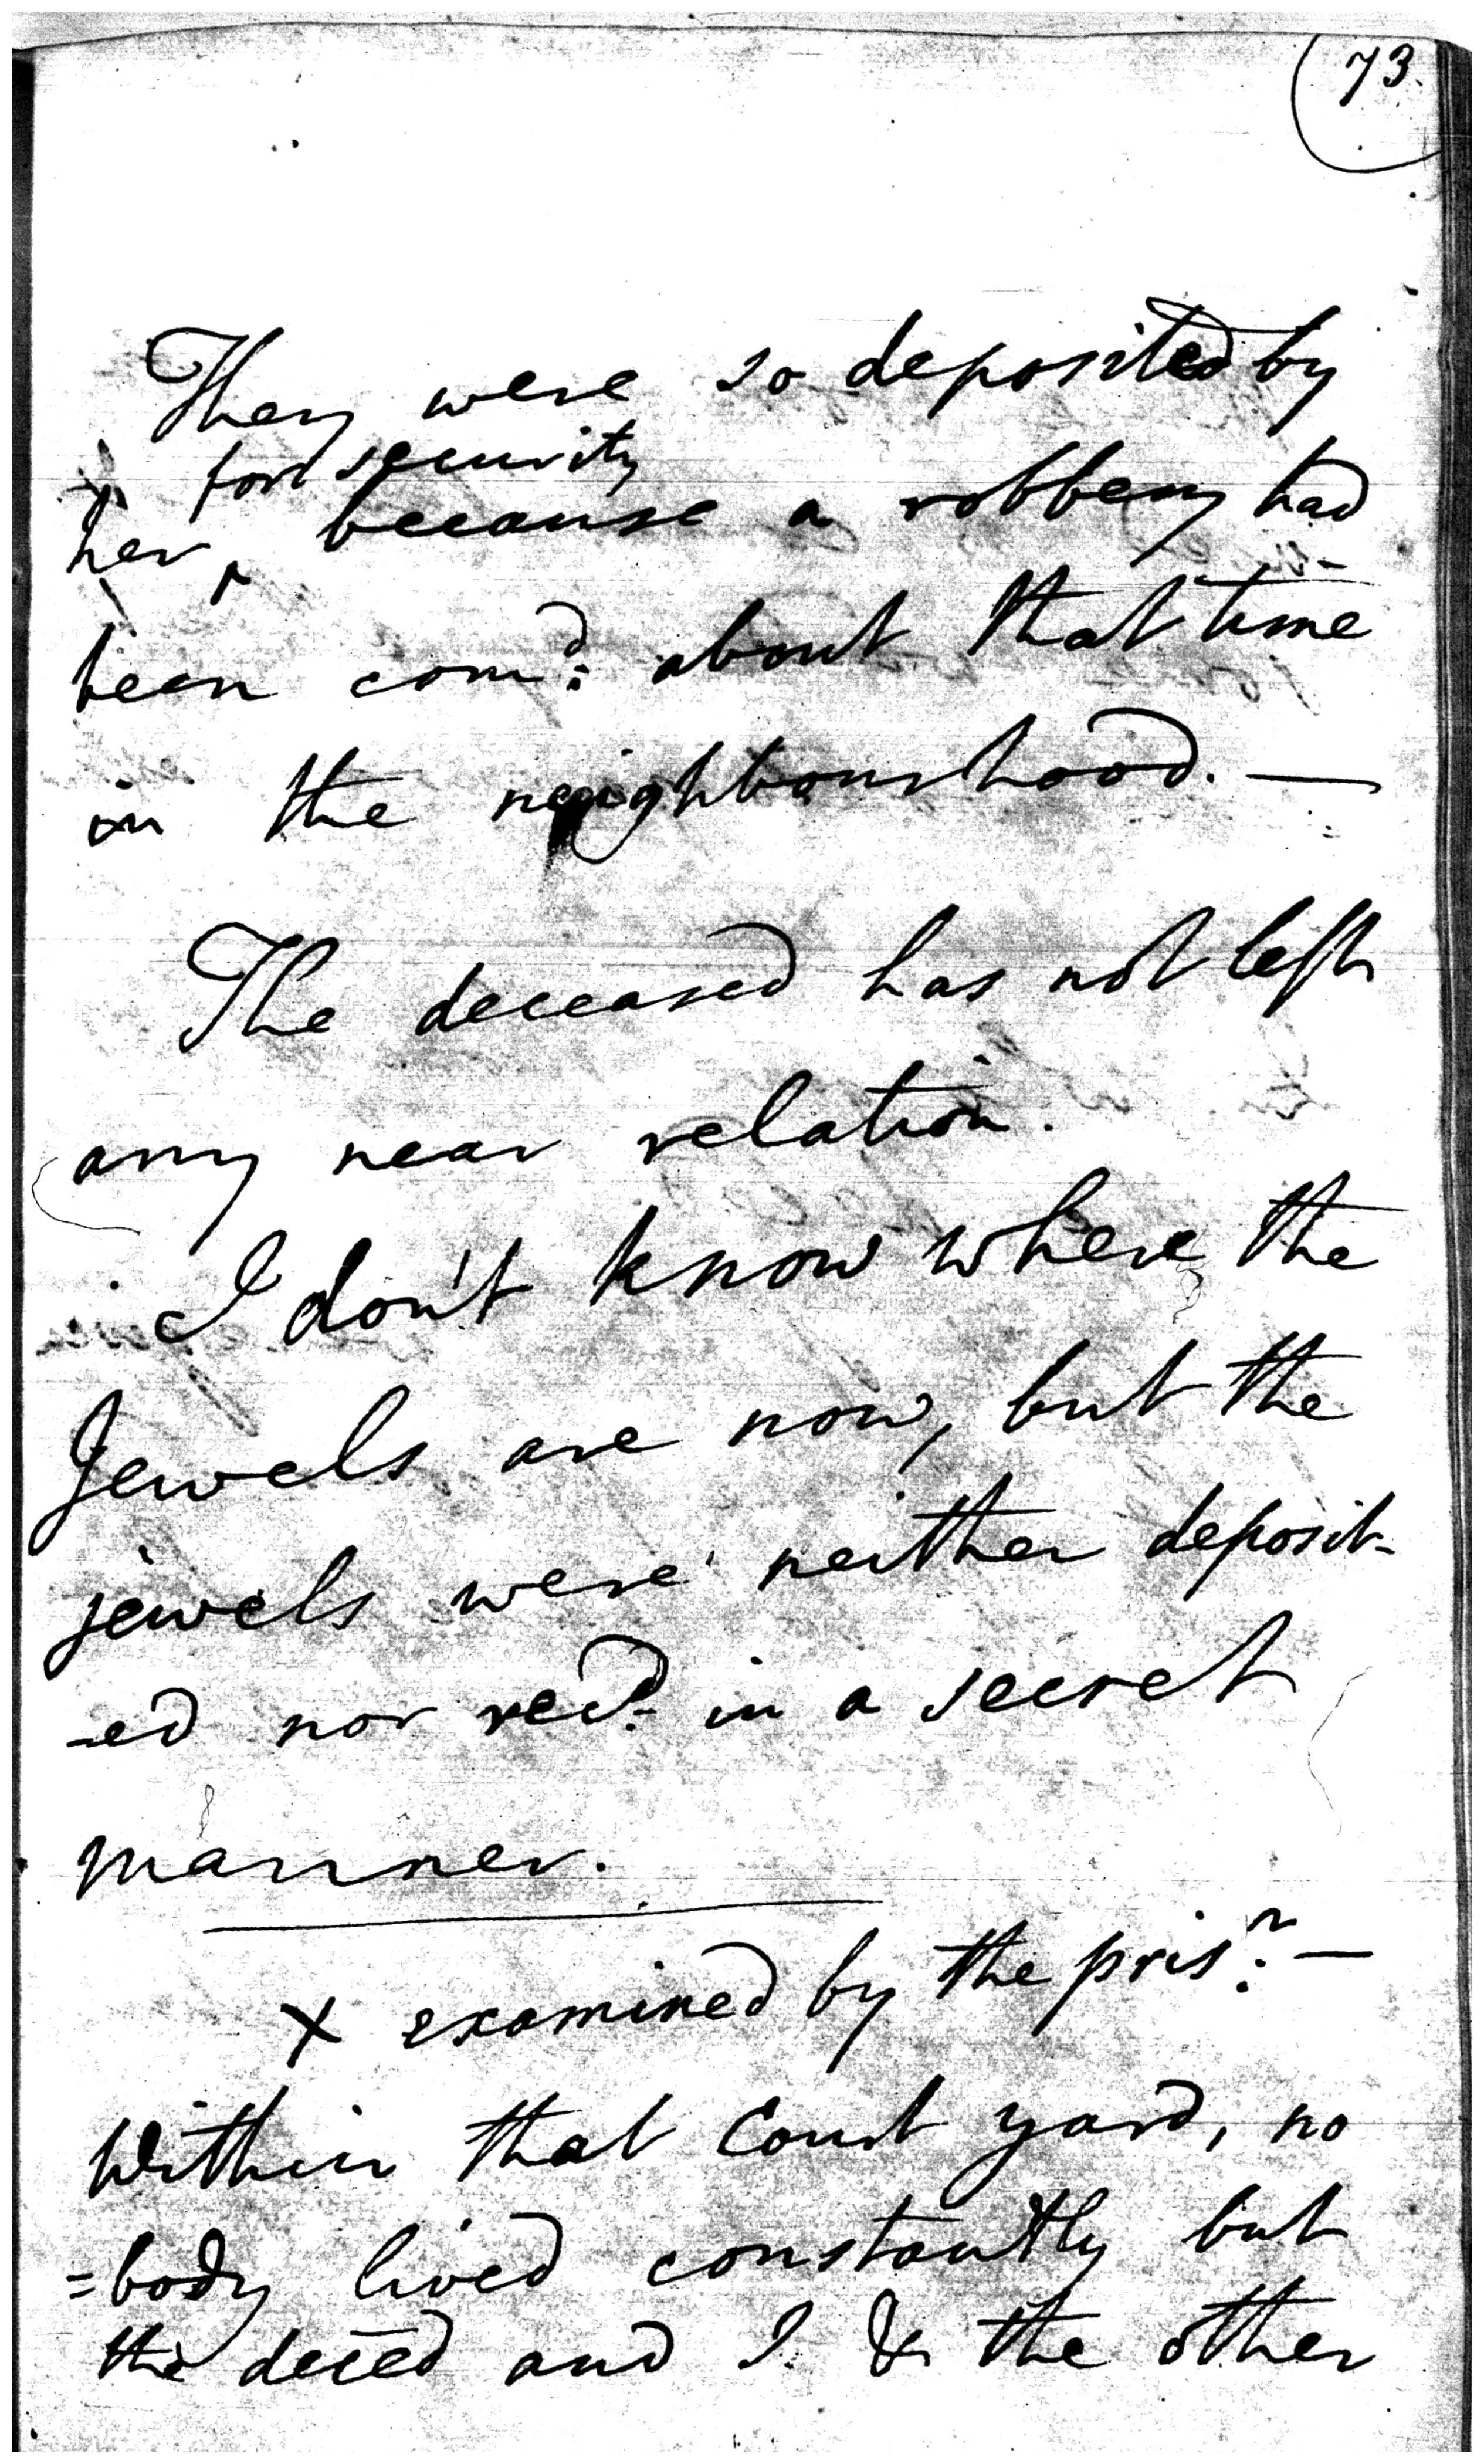 73.
They were so deposited by
for security
her ‸ because a robbery had
been com^d: about that time
in the neighbourhood. —
The deceased has not left
any near relation.
I don't know where the
Jewels are now, but the
jewels were neither deposit-
-ed nor rec^d. in a secret
manner.
X examined by the pris^r: —
Within that Court yard, no
=body lived constantly but
the deced and I & the other